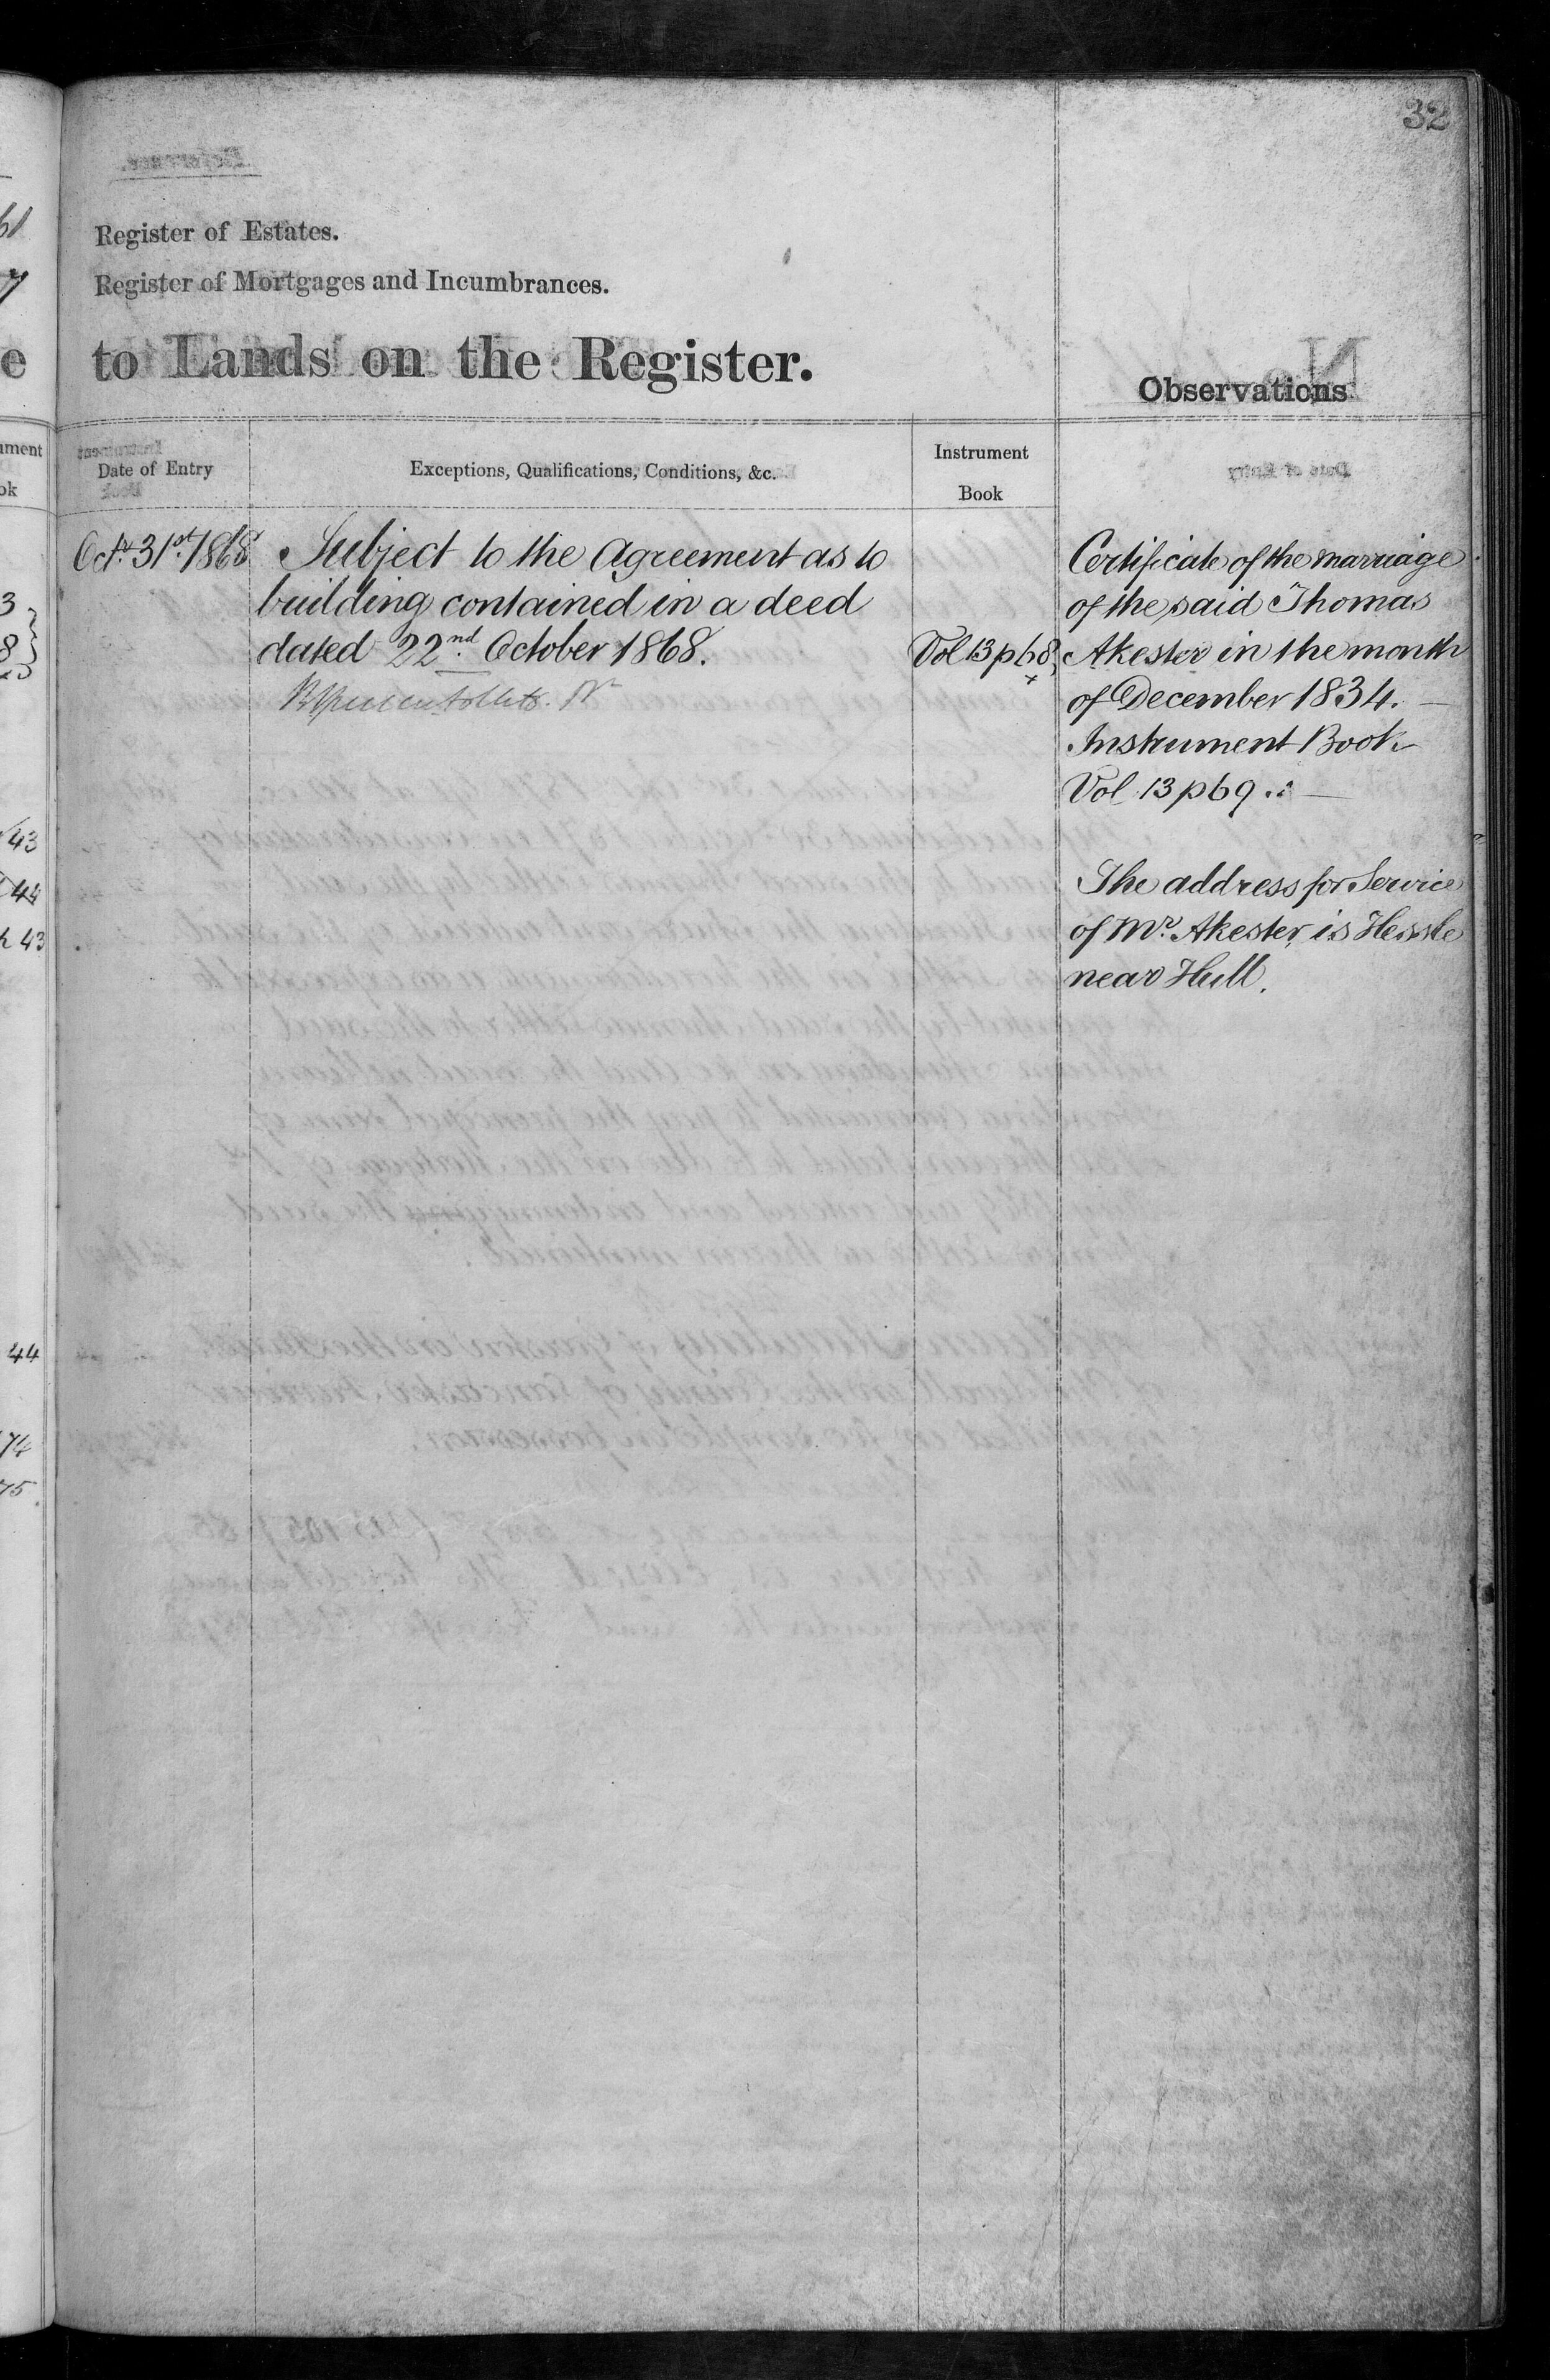 32
Register of Estates.
Register of Mortgages and Incumbrances.
to Lands on the Register.
Observations
Date of Entry
Exceptions, Qualifications, Conditions, &c.
Instrument
Book
Octr. 31st. 1868
Subject to the Agreement as to
building contained in a deed
dated 22nd. October 1868.
Vol 13 p 68
Certificate of the marriage
of the said Thomas
Akester in the month
of December 1834. —
Instrument Book
Vol 13 p 69 .: —
The address for Service
of Mr. Akester is Hessle
near Hull.
61
7
e
ument
ok
3
8
43
44
43
44
74
75